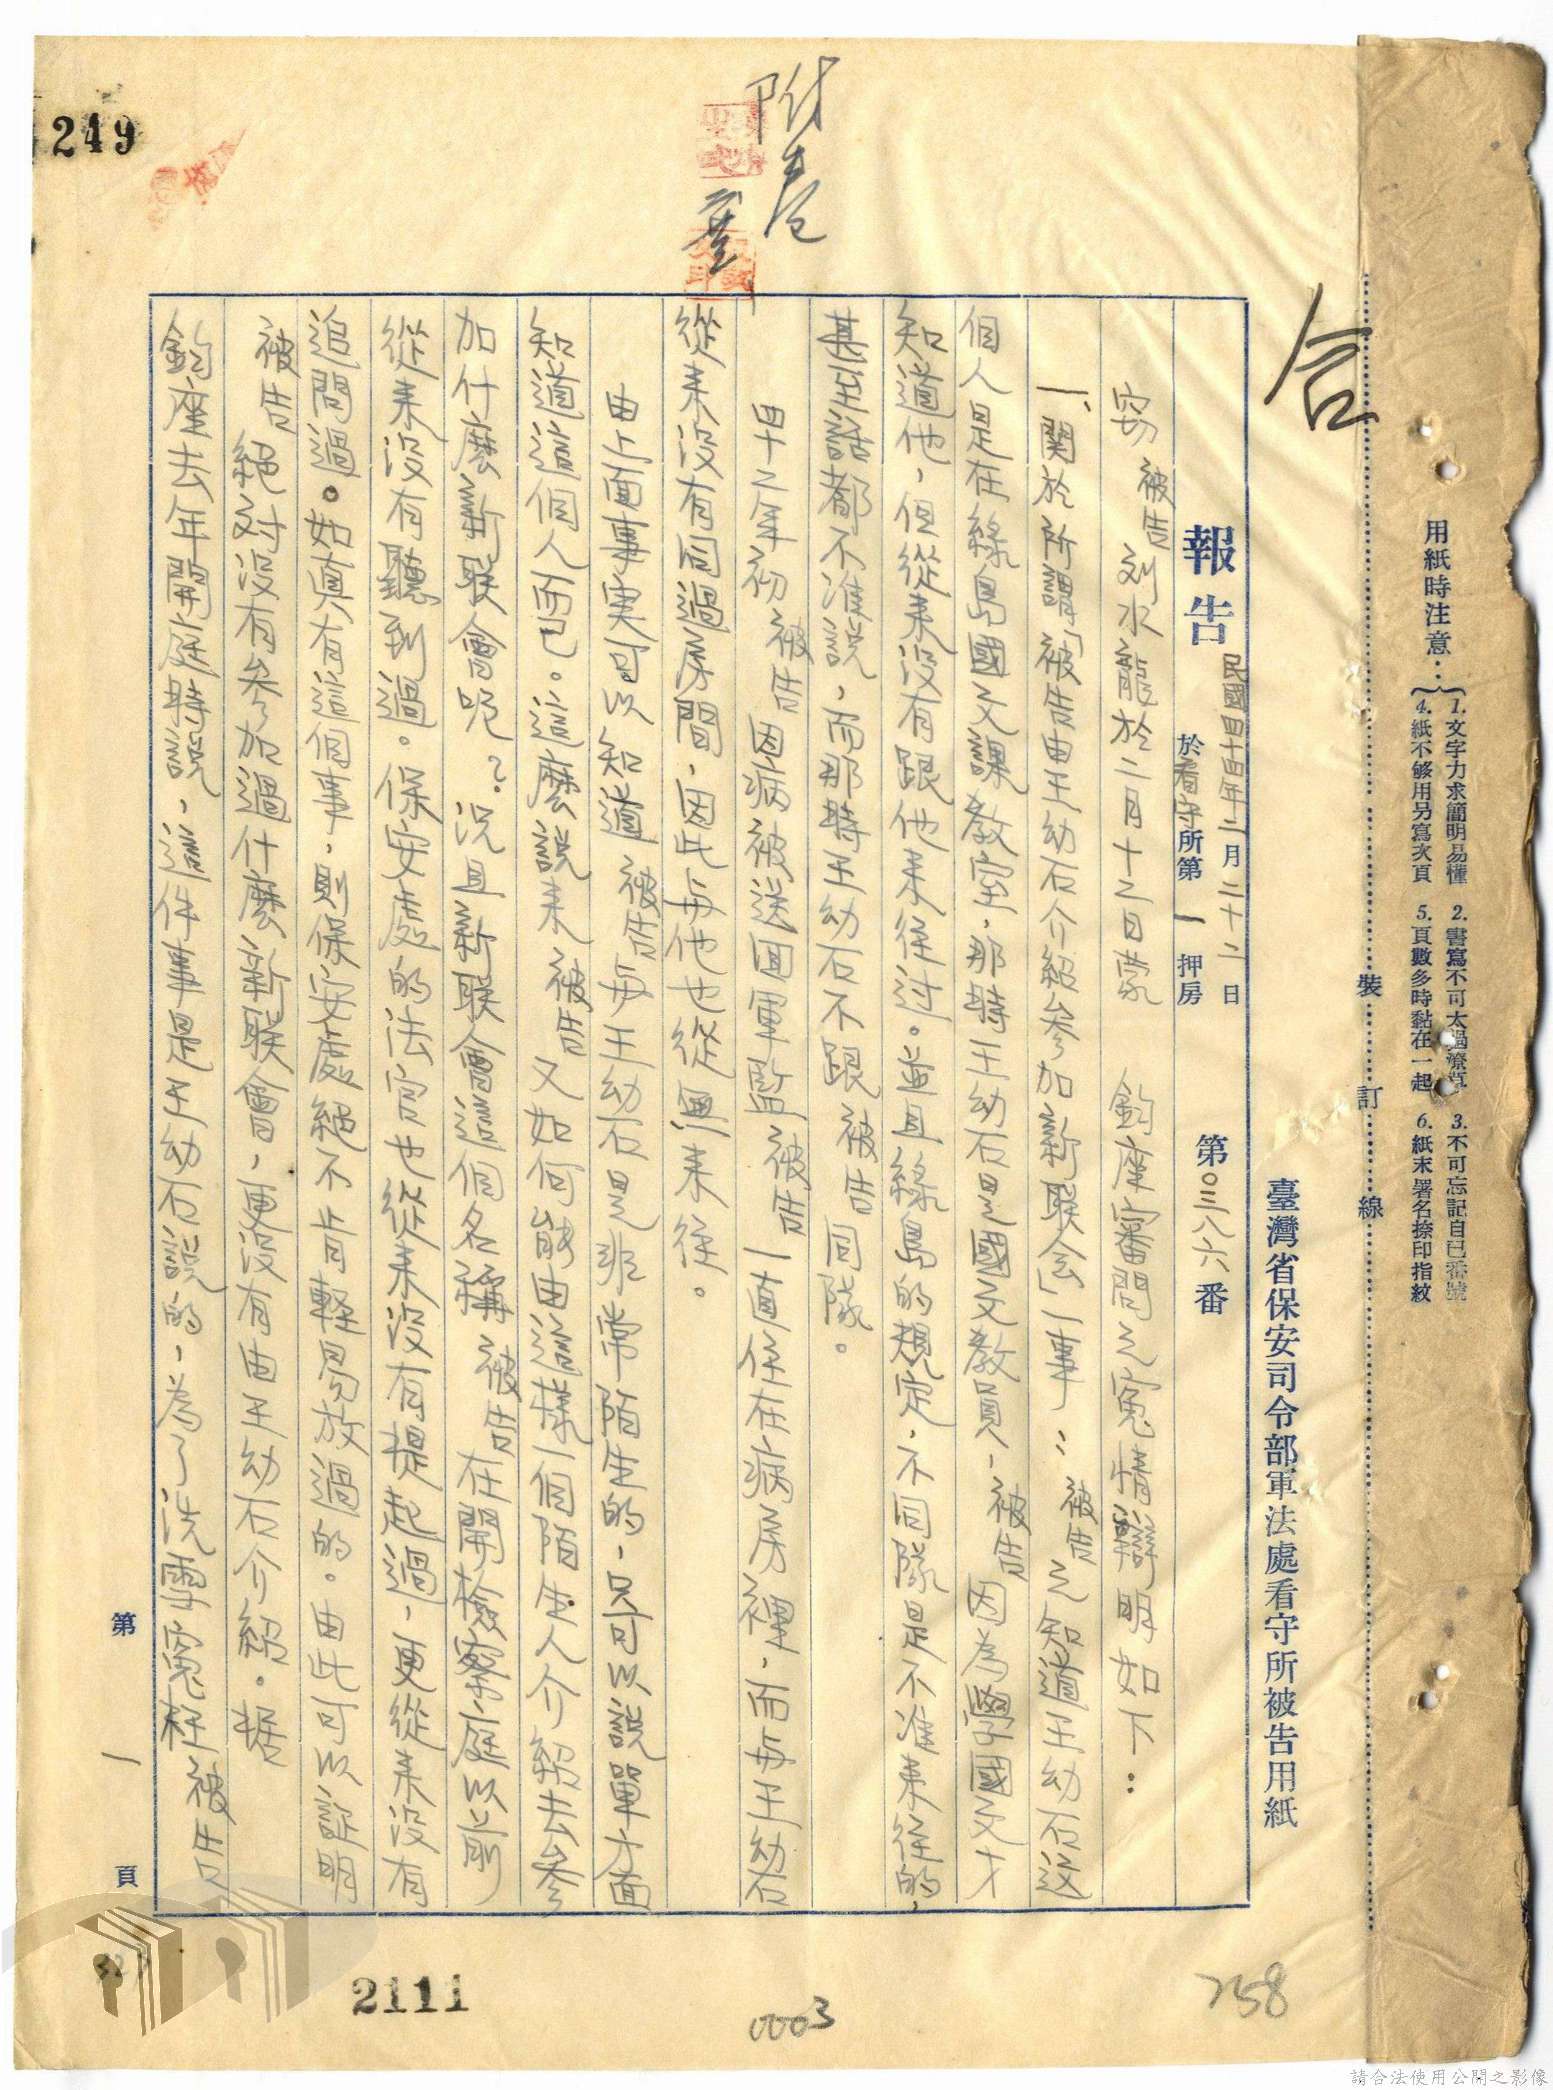 用紙時注意：
1. 文字力求簡明易懂 2. 書寫不可太過潦草 3. 不可忘記自己番號
4. 紙不够用另寫次頁 5. 頁數多時黏在一起 6. 紙末署名捺印指紋
裝 訂 線
臺灣省保安司令部軍法處看守所被告用紙
合
報告 民國四十四年二月二十二日 於看守所第一押房 第〇三八六番
窃 被告 刘水龍於二月十二日蒙 鈞座審問之寃情辯明如下：
一、関於所謂「被告由王幼石介紹參加新联会」一事：被告之知道王幼石这
個人是在綠島國文課教室，那時王幼石是國文教員，被告因為學國文才
知道他，但從来没有跟他来往过。並且綠島的規定，不同隊是不准来往的，
甚至話都不准説，而那時王幼石不跟 被告 同隊。
四十二年初 被告 因病被送回軍監 被告 一直住在病房裡，而与王幼石
從来没有同過房間，因此与他也從無来往。
由上面事実可以知道 被告 与王幼石是非常陌生的，只可以説單方面
知道這個人而已。這麼説来 被告 又如何能由這樣一個陌生人介紹去參
加什麼新联會呢？况且新联會這個名稱 被告 在開檢察庭以前
從来没有聽到過。保安處的法官也從来没有提起過，更從来没有
追問過。如真有這個事，則保安處絕不肯輕易放過的。由此可以証明
被告 絕对没有參加過什麼新联會，更没有由王幼石介紹。据
鈞座去年開庭時説，這件事是王幼石説的，為了洗雪寃枉 被告
第一頁
附卷
249
2111
0003
758
請合法使用公開之影像